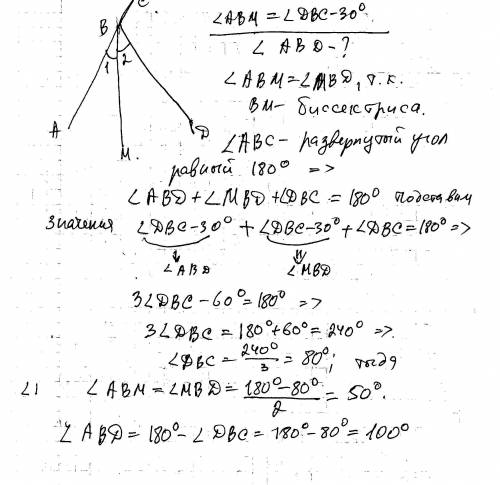 C
∠ABM = ∠DBC-30°
B
∠ ABD-?
1 2
∠ABM=∠MBD, т.к.
BM- биссектриса.
A
D
M.
∠ABC- развернутый угол
равный 180° =>
∠ABD+∠MBD+∠DBC = 180° подставим
значения ∠DBC-30° + ∠DBC-30° + ∠DBC=180° =>
∠ABD ∠MBD
3∠DBC-60°=180° =>
3∠DBC = 180°+60°= 240° =>
∠DBC= 240°/3 = 80°; тогда
∠1 ∠ABM = ∠MBD= 180°-80°/2 = 50°.
∠ABD=180°-∠DBC=180°-80°=100°